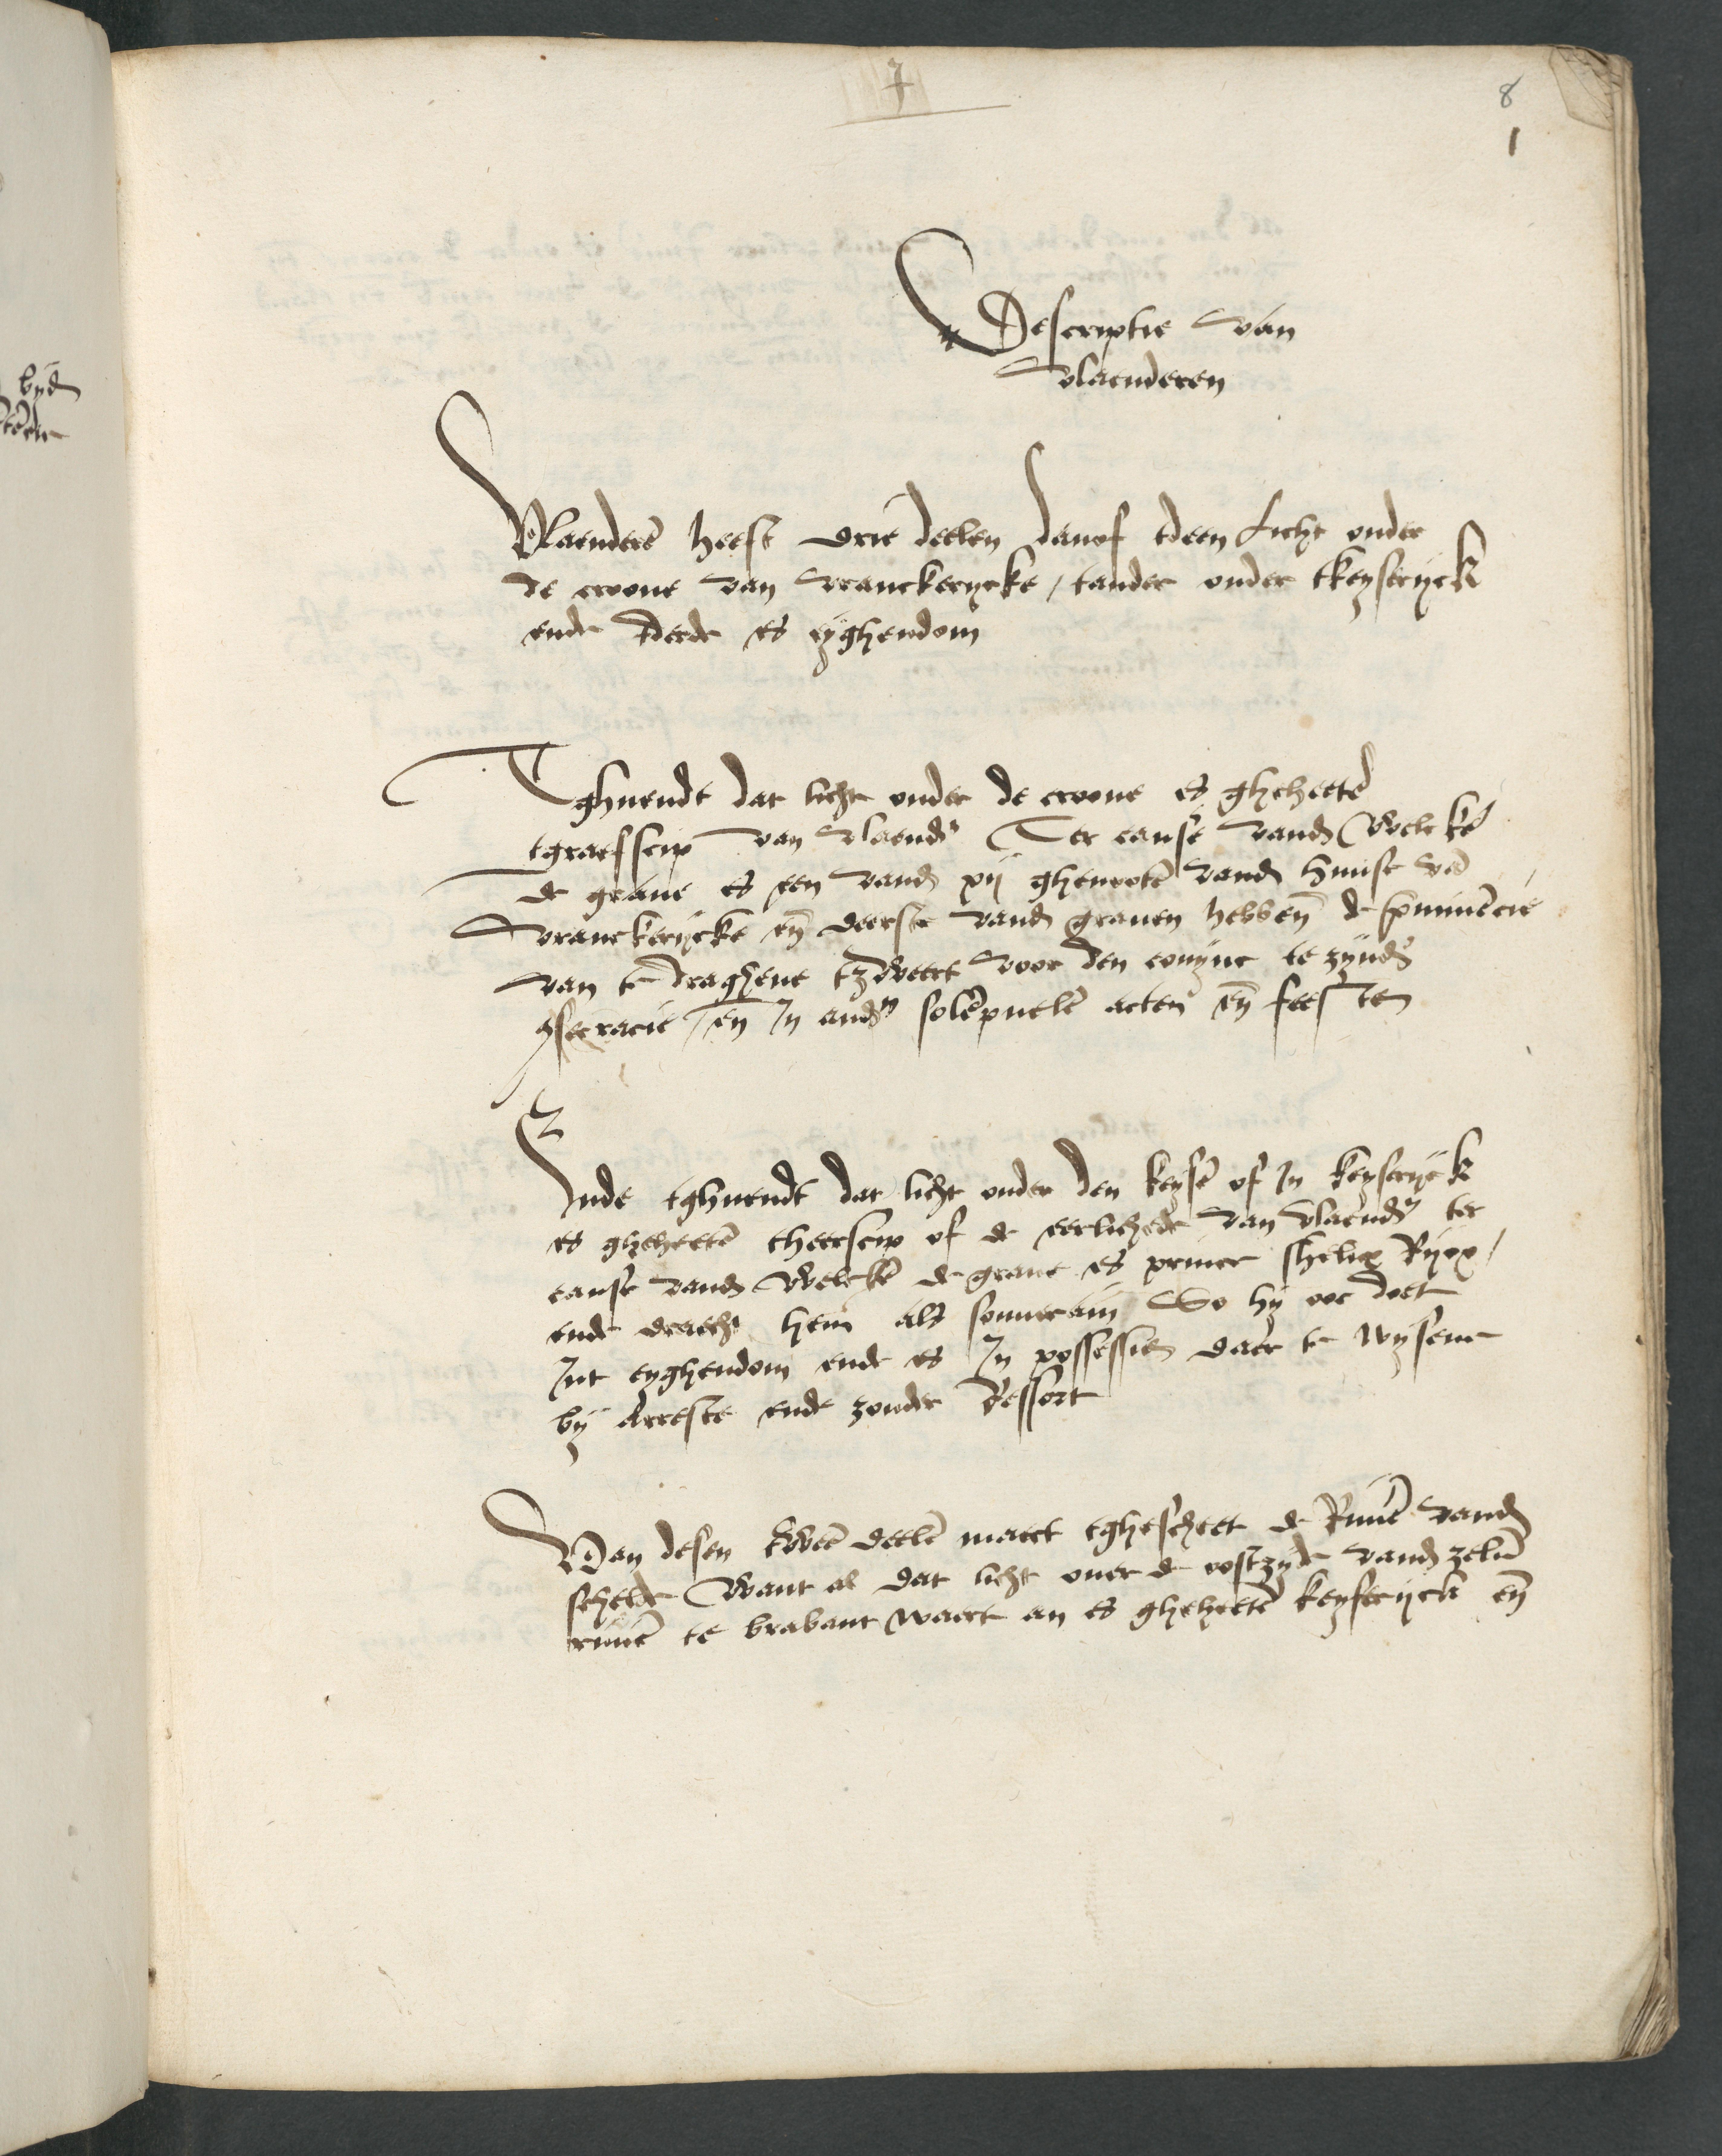 7
8
1
Descriptie van
Vlaenderen
Vlaenderē heeft drie deelen danof tdeen Licht onder
de croone van vranckerycke / tander onder tkeyserijck
ende tderde es eyghendom
Tghuendt dat licht onder de croone es gheheetē
tgraefscip van vlaendr̄ Ter cause vandr̄ welcke
de graue es een vandr̄ xij ghenootē vandr̄ huuse vā
vranckerijcke eñ deerste vandr̄ grauen hebbeñ de p̄minēcie
van te draghene tzweert voor den conync te zyndr̄
9secracie / eñ In andr̄ solēpnelē acten eñ feesten
Ende tghuendt dat licht onder den keysē of In keyserijck
es gheheetē theerscip of de eerlichede van vlaendr̄ ter
cause vandr̄ welckē de graue es prince shelix Rijcx /
ende draecht hem als souuerain So hij ooc doet
Int eyghendom ende es In possessien daer te wysene
bij Arreste ende zonder Ressort
Van desen tweē deelē maect tghescheet de Riuiē vandr̄
schelde Want al dat licht ouer de oostzijde vandr̄ zeluē
riuiē te brabant waert an es gheheetē keyserijck eñ
byd